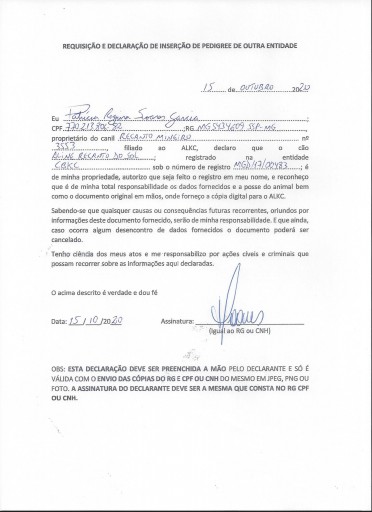 REQUISIÇÃO E DECLARAÇÃO DE INSERÇÃO DE PEDIGREE DE OUTRA ENTIDADE
15 de OUTUBRO 2020
Eu Patricia Regina Soares Garcia
CPF ;RG MG
proprietário do canil RECANTO MINEIRO nº
3553, filiado ao ALKC, declaro que o cão
ALINE RECANTO DO SOL; registrado na entidade
CBKC sob o número de registro MGD/17/00483; é
de minha propriedade, autorizo que seja feito o registro em meu nome, e reconheço
que é de minha total responsabilidade os dados fornecidos e a posse do animal bem
como o documento original em mãos, onde forneço a cópia digital para o ALKC.
Sabendo-se que quaisquer causas ou consequências futuras recorrentes, oriundos por
informações deste documento fornecido, serão de minha responsabilidade. E que ainda,
caso ocorra algum desencontro de dados fornecidos o documento poderá ser
cancelado.
Tenho ciência dos meus atos e me responsabilizo por ações cíveis e criminais que
possam recorrer sobre as informações aqui declaradas.
O acima descrito é verdade e dou fé
Data: 15/10/2020 Assinatura:
(Igual ao RG ou CNH)
OBS: ESTA DECLARAÇÃO DEVE SER PREENCHIDA A MÃO PELO DECLARANTE E SÓ É
VÁLIDA COM O ENVIO DAS CÓPIAS DO RG E CPF OU CNH DO MESMO EM JPEG, PNG OU
FOTO. A ASSINATURA DO DECLARANTE DEVE SER A MESMA QUE CONSTA NO RG CPF
OU CNH.